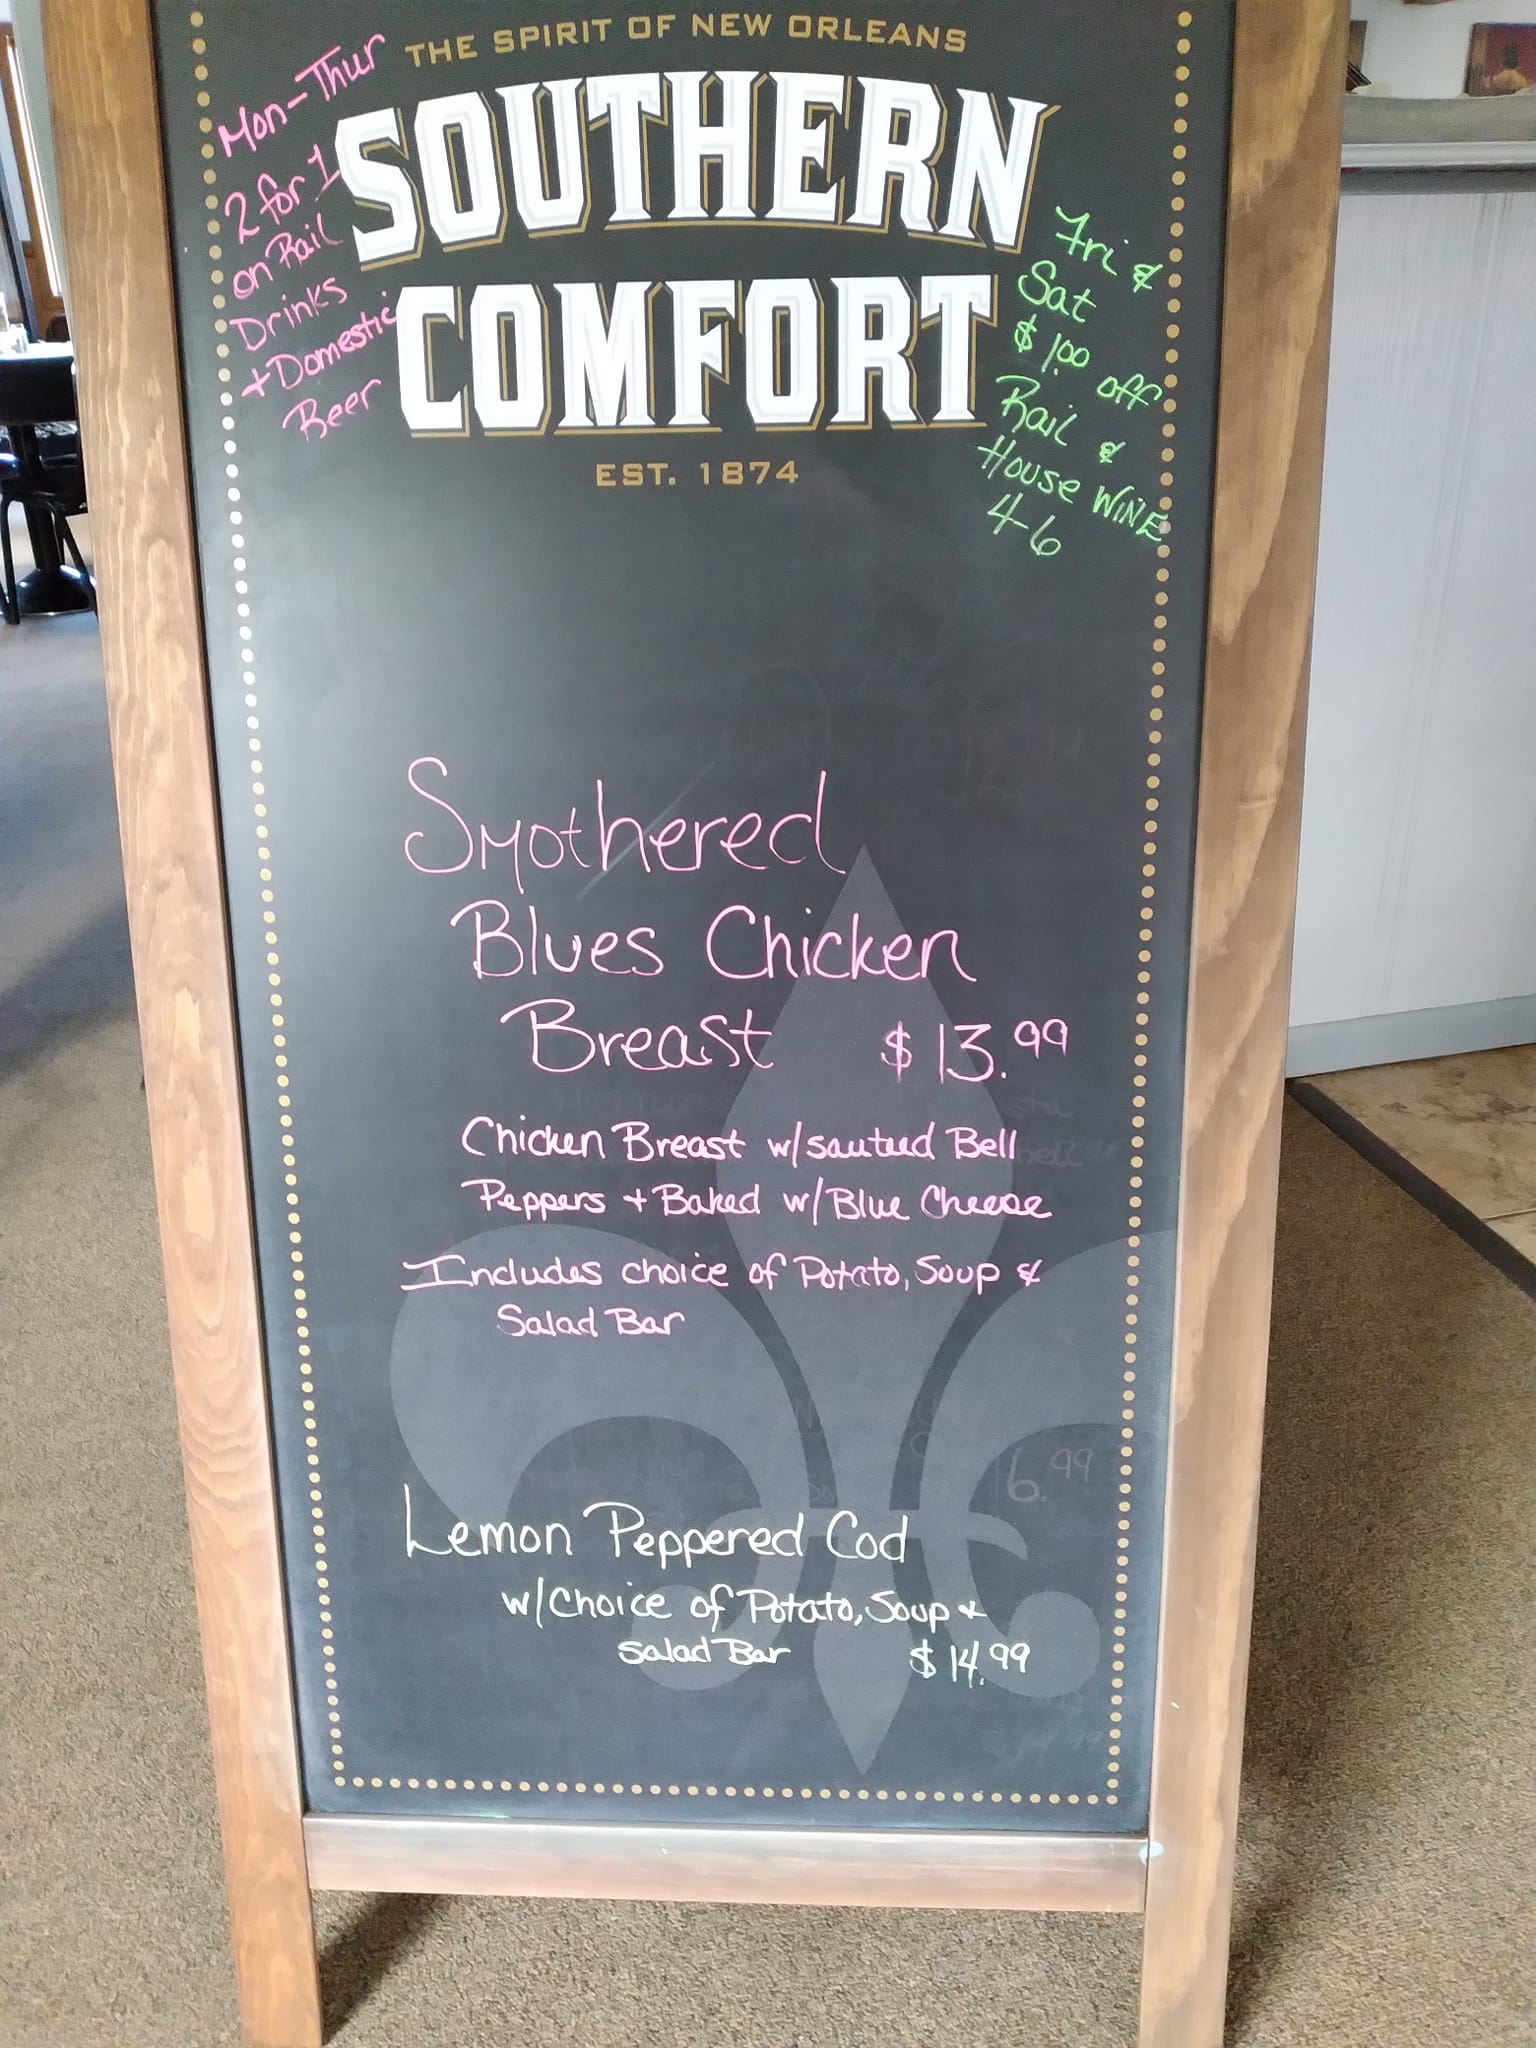 THE SPIRIT OF NEW ORLEANS
SOUTHERN
COMFORT
EST. 1874
Mon-Thur
2 for 1
on Rail
Drinks
+ Domestic
Beer
Fri &
Sat
$1.00 off
Rail &
House WINE
4-6
Smothered
Blues Chicken
Breast $13.99
Chicken Breast w/sauteed Bell
Peppers + Baked w/Blue Cheese
Includes choice of Potato, Soup &
Salad Bar
16.99
Lemon Peppered Cod
w/Choice of Potato, Soup &
Salad Bar $14.99